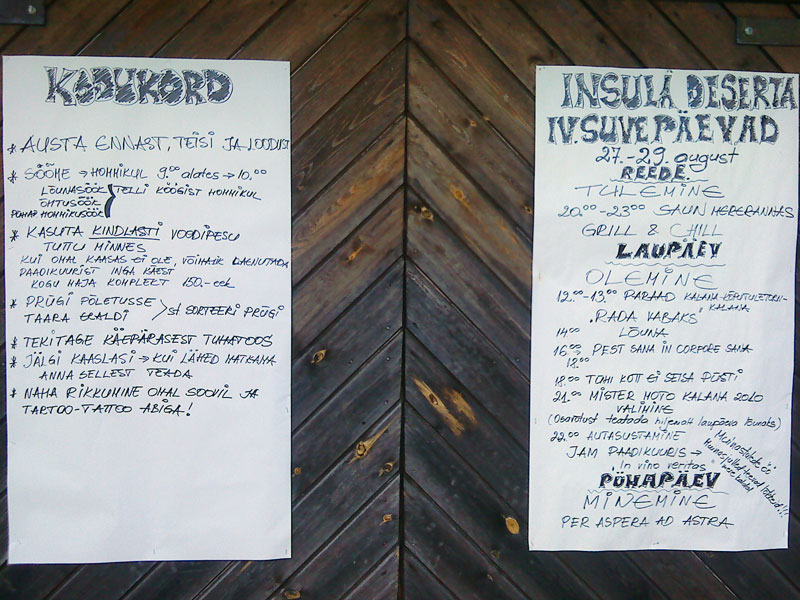 KODUKORD
* AUSTA ENNAST, TEISI JA LOODUST
* SÖÖME → HOMMIKUL 9.00 alates → 10.00
LÕUNASÖÖK
ÕHTUSÖÖK
PÜHAP HOMMIKUSÖÖK
TELLI KÖÖGIST HOMMIKUL
* KASUTA KINDLASTI VOODIPESU
TUTTU MINNES
KUI OMAL KAASAS EI OLE, VÕIMALIK LAENUTADA
PAADIKUURIST INGA KÄEST
KOGU MAJA KOMPLEKT 150.- eek
* PRÜGI PÕLETUSSE
TAARA ERALDI
> st SORTEERI PRÜGI
* TEKITAGE KÄEPÄRASEST TUHATOOS
* JÄLGI KAASLASI → KUI LÄHED MATKAMA
ANNA SELLEST TEADA
* NAHA RIKKUMINE OMAL SOOVIL JA
TARTOO-TATTOO ABIGA!
INSULA DESERTA
IV SUVEPÄEVAD
27.-29. august
REEDE.
TULEMINE
20.00-23.00 SAUN MERERANNAS
GRILL & CHILL
LAUPÄEV
OLEMINE
12.00-13.00 PARAAD KALANA-KÕPUTULETORN-
KALANA
"RADA VABAKS"
14.00 LÕUNA
16.00 → PEST SANA IN CORPORE SANA
18.00
18.00 TÜHI KOTT EI SEISA PÜSTI
21.00 MISTER MOTO KALANA 2010
VALIMINE
(Osavõtust teatada hiljemalt laupäeva lõunaks)
22.00 AUTASUSTAMINE
JAM PAADIKUURIS →
Muinastulede öö
"In vino veritas"
PÜHAPÄEV
MINEMINE
PER ASPERA AD ASTRA